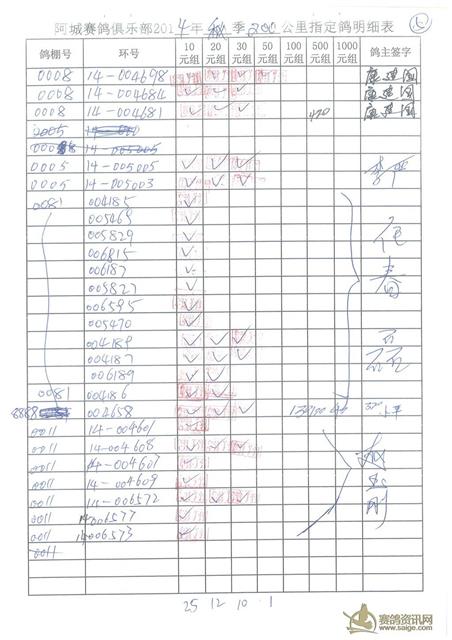 阿城赛鸽俱乐部2014年秋季200公里指定鸽明细表
鸽棚号 环号 10元组 20元组 30元组 50元组 100元组 500元组 1000元组 鸽主签字
0008 14-004698 ✓ ✓ ✓ 康建国
0008 14-004684 ✓ ✓ ✓ 康建国
0008 14-004681 ✓ ✓ ✓ 康建国
0005
0005 14-005005 ✓ ✓ ✓
0005 14-005003 ✓ ✓ ✓
0081 004185 ✓
005469 ✓
005829 ✓
006815 ✓
006187 ✓
005827 ✓
006595 ✓
005470 ✓
004189 ✓ ✓ ✓
004187 ✓ ✓ ✓
006189 ✓ ✓
0081 004186 ✓ ✓
8888 004658 ✓ ✓ ✓ ✓
0011 14-004601 ✓
0011 14-004608 ✓ ✓ ✓
0011 14-004607 ✓
0011 14-004609 ✓
0011 14-006572 ✓ ✓ ✓
0011 14006577 ✓
0011 14006573 ✓
0011
25 12 10 1
赛鸽资讯网
www.saige.com